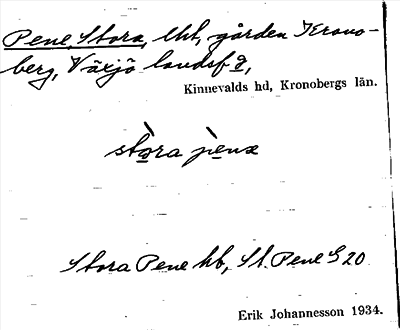 Pene, Stora, lht, gården Krono-
berg, Växjö landsf g,
Kinnevalds hd, Kronobergs län.
stòra pènɐ
Stora Pene hb, St. Pene G 20
Erik Johannesson 1934.